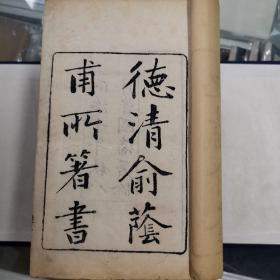 德清俞蔭
甫所箸書